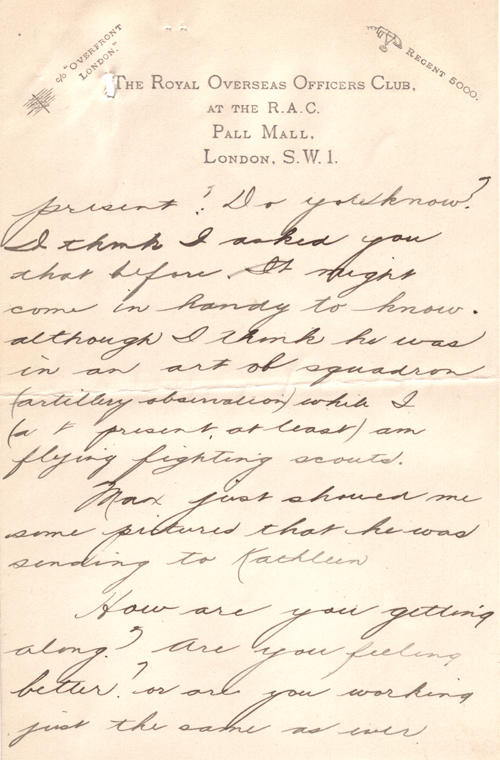 c/o "OVERFRONT
LONDON."
REGENT 5000.
THE ROYAL OVERSEAS OFFICERS CLUB,
AT THE R.A.C.
PALL MALL,
LONDON, S.W.1.
present? Do you know?
I think I asked you
that before. It might
come in handy to know.
although I think he was
in an art ob squadron
(artillery observation) while I
(at present, at least) am
flying fighting scouts.
Max just showed me
some pictures that he was
sending to Kathleen
How are you getting
along? Are you feeling
better? or are you working
just the same as ever